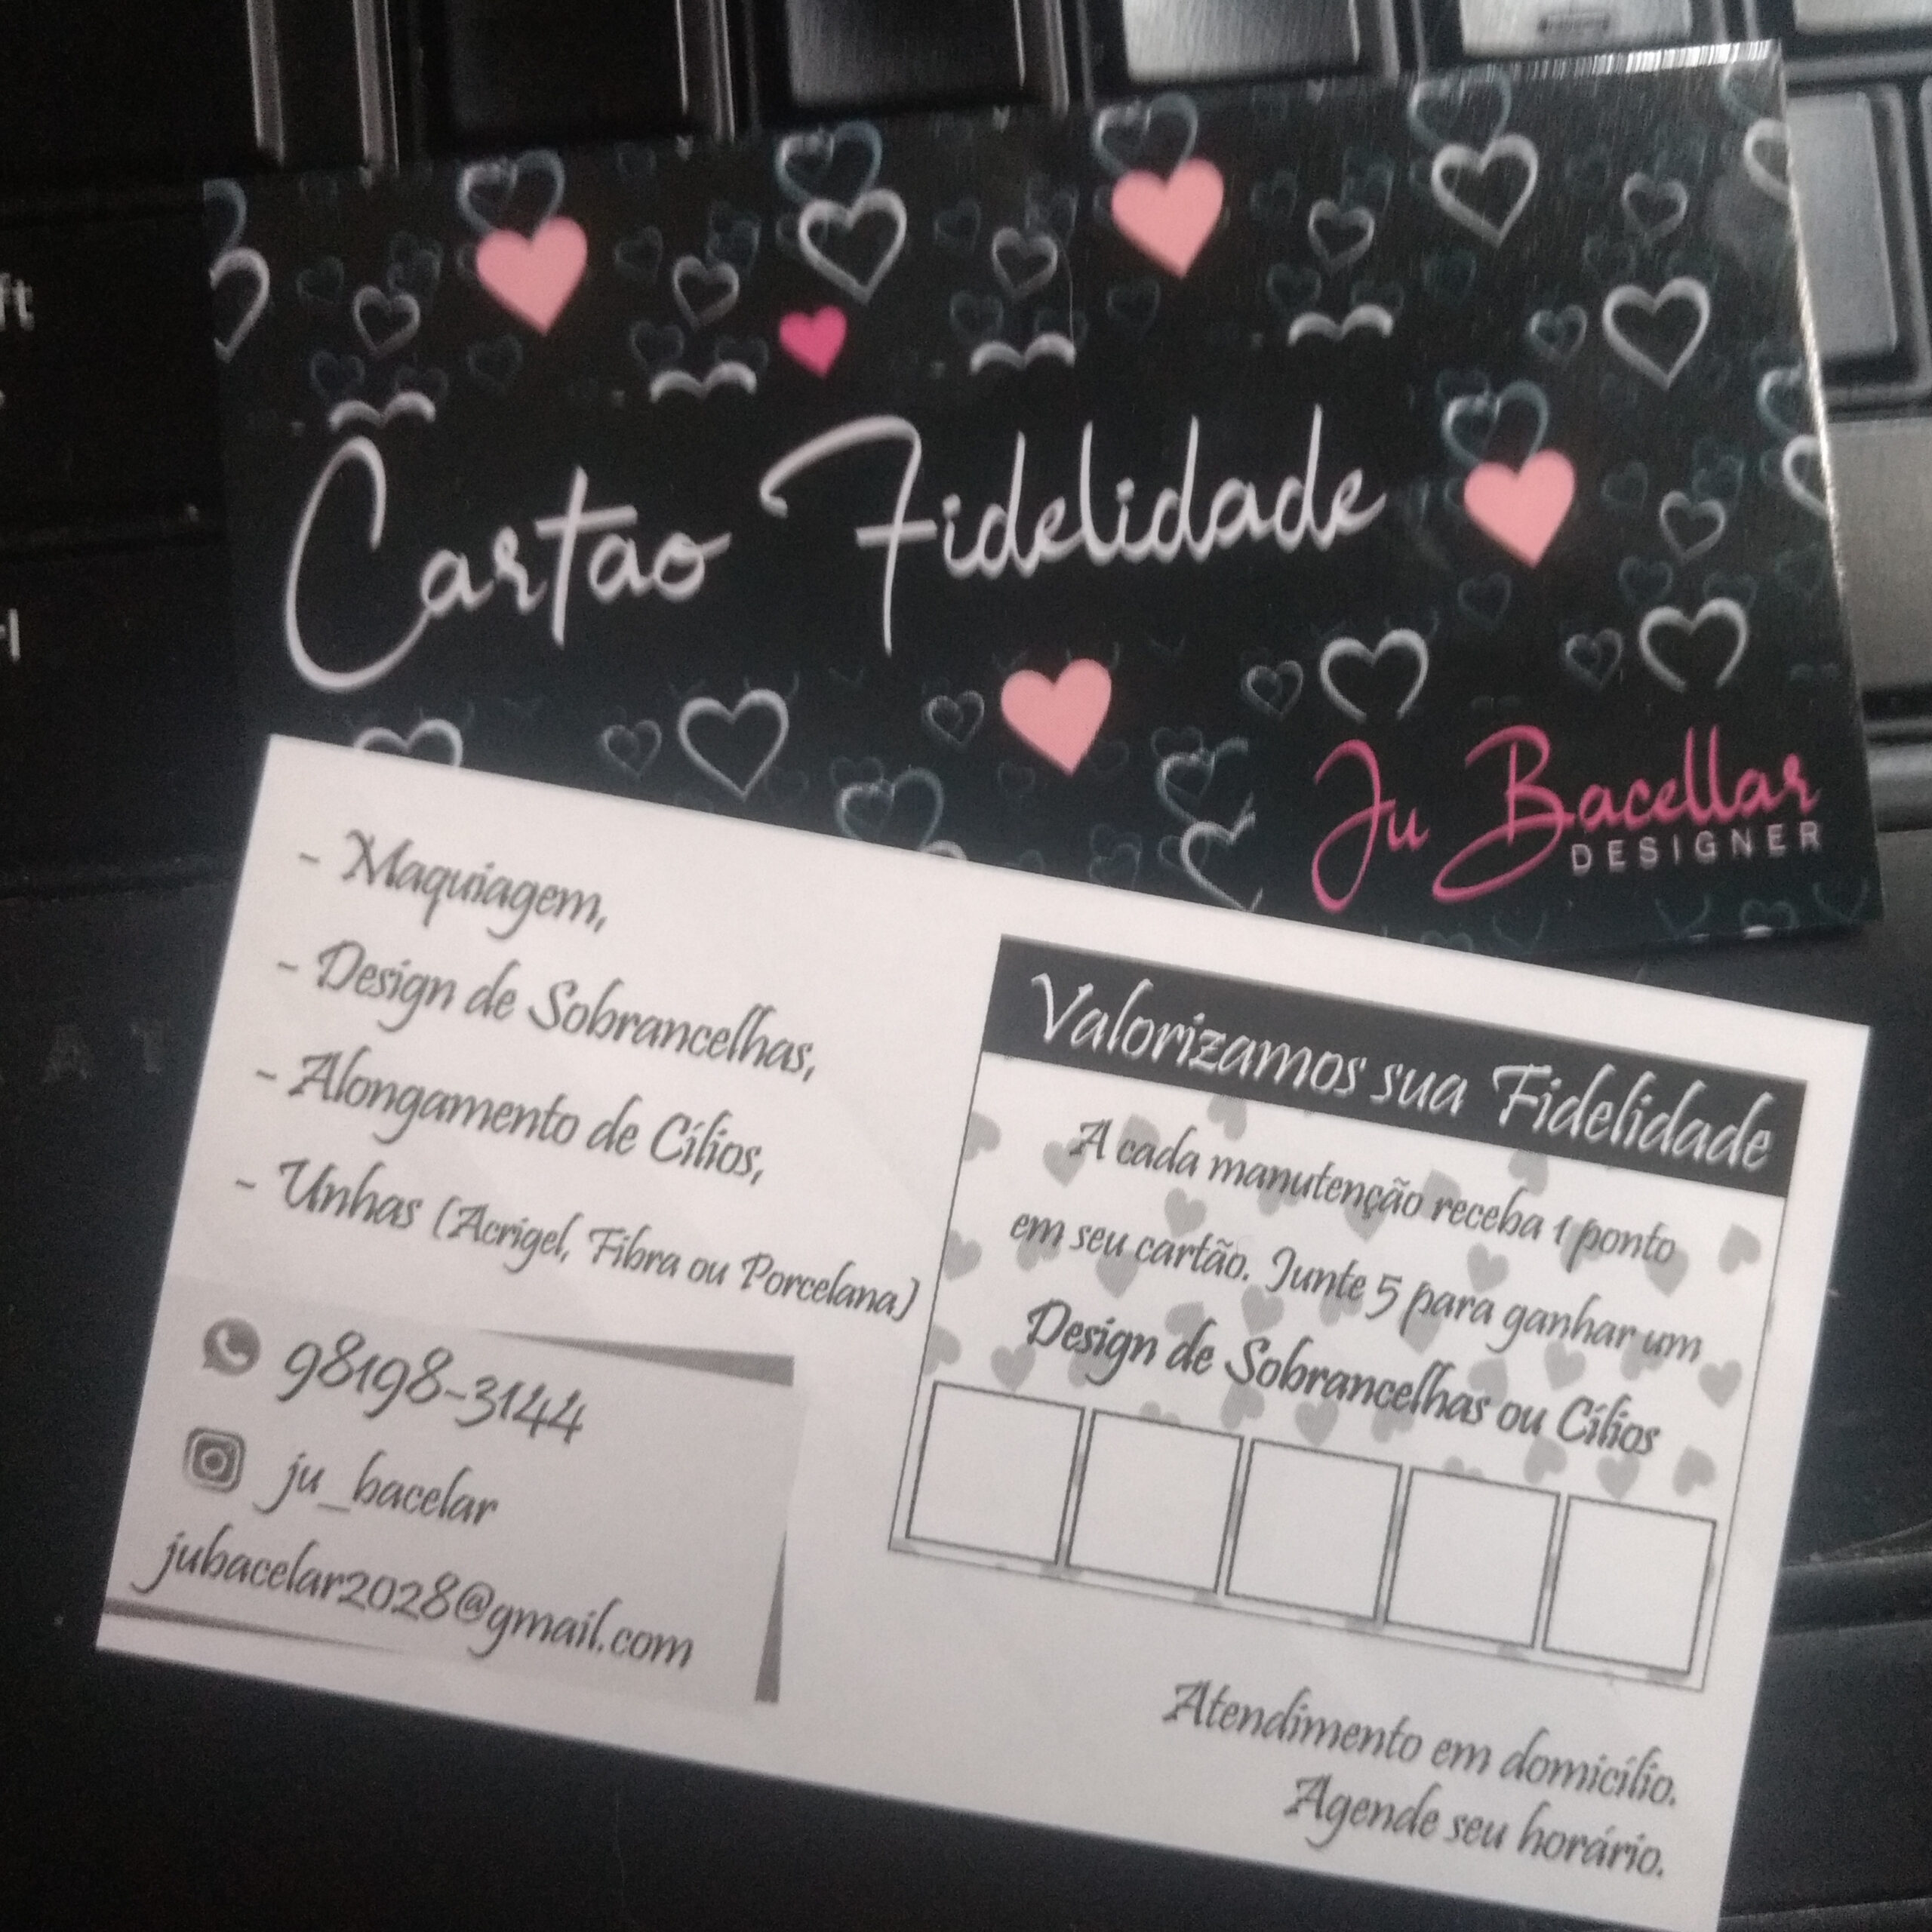 Cartao Fidelidade
Ju Bacellar
DESIGNER
- Maquiagem,
- Design de Sobrancelhas,
- Alongamento de Cílios,
- Unhas (Acrigel, Fibra ou Porcelana)
98198-3144
ju_bacelar
jubacelar2028@gmail.com
Valorizamos sua Fidelidade
A cada manutenção receba 1 ponto
em seu cartão. Junte 5 para ganhar um
Design de Sobrancelhas ou Cílios
Atendimento em domicílio.
Agende seu horário.